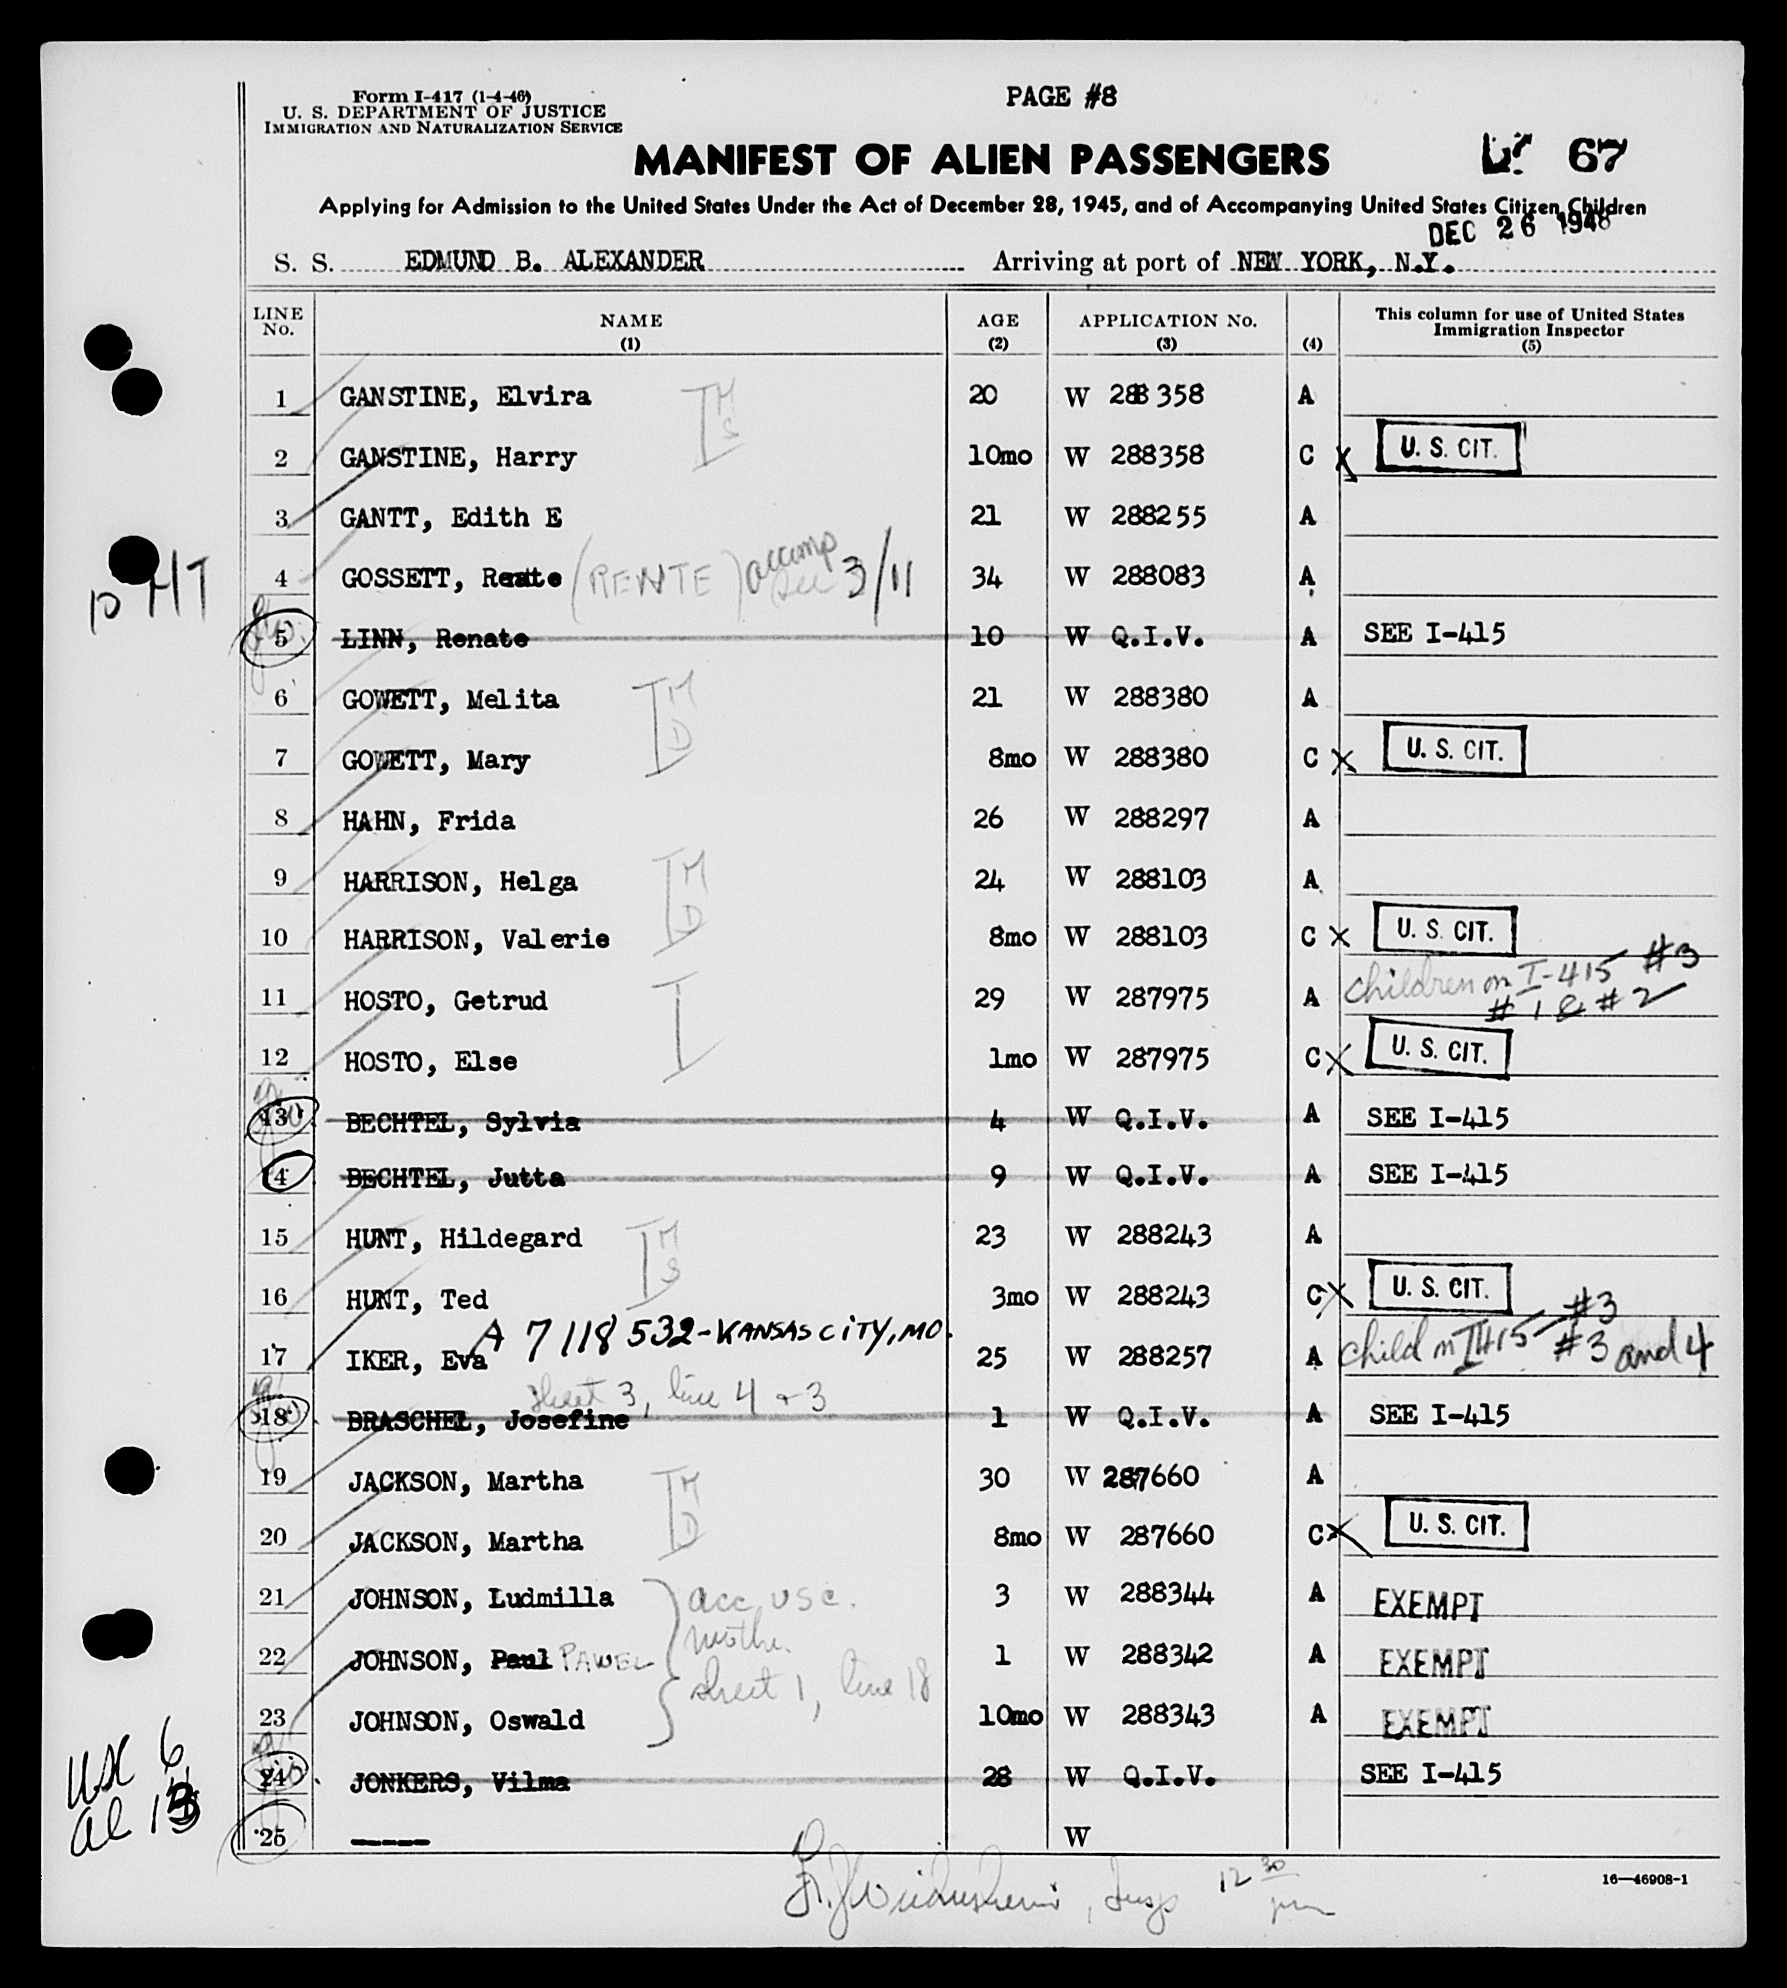 Form I-417 (1-4-46)
U. S. DEPARTMENT OF JUSTICE
IMMIGRATION AND NATURALIZATION SERVICE
PAGE #8
MANIFEST OF ALIEN PASSENGERS
67
Applying for Admission to the United States Under the Act of December 28, 1945, and of Accompanying United States Citizen Children
DEC 26 1946
S. S. EDMUND B. ALEXANDER Arriving at port of NEW YORK, N.Y.
LINE No. NAME (1) AGE (2) APPLICATION No. (3) (4) This column for use of United States Immigration Inspector (5)
1 GANSTINE, Elvira M S 20 W 288358 A
2 GANSTINE, Harry 10mo W 288358 C X U. S. CIT.
3 GANTT, Edith E 21 W 288255 A
4 GOSSETT, Reate (RENTE) accomp see 3/11 34 W 288083 A
10 HT
5 LINN, Renate 10 W Q.I.V. A SEE I-415
6 GOWETT, Melita M D 21 W 288380 A
7 GOWETT, Mary 8mo W 288380 C X U. S. CIT.
8 HAHN, Frida 26 W 288297 A
9 HARRISON, Helga M D 24 W 288103 A
10 HARRISON, Valerie 8mo W 288103 C X U. S. CIT.
11 HOSTO, Getrud 29 W 287975 A children on I-415 #3 #1 & #2
12 HOSTO, Else 1mo W 287975 C X U. S. CIT.
13 BECHTEL, Sylvia 4 W Q.I.V. A SEE I-415
14 BECHTEL, Jutta 9 W Q.I.V. A SEE I-415
15 HUNT, Hildegard M S 23 W 288243 A
16 HUNT, Ted 3mo W 288243 C X U. S. CIT.
A 7118532-KANSAS CITY, MO.
17 IKER, Eva 25 W 288257 A child on I415 #3 #3 and 4
sheet 3, line 4 & 3
18 BRASCHEL, Josefine 1 W Q.I.V. A SEE I-415
19 JACKSON, Martha M D 30 W 287660 A
20 JACKSON, Martha 8mo W 287660 C X U. S. CIT.
21 JOHNSON, Ludmilla acc. USC. 3 W 288344 A EXEMPT
22 JOHNSON, Paul PAWEL mother 1 W 288342 A EXEMPT
sheet 1, line 18
23 JOHNSON, Oswald 10mo W 288343 A EXEMPT
24 JONKERS, Vilma 28 W Q.I.V. SEE I-415
USC 6
al 13
25 ----- W
Insp 12 30 pm
16—46908-1